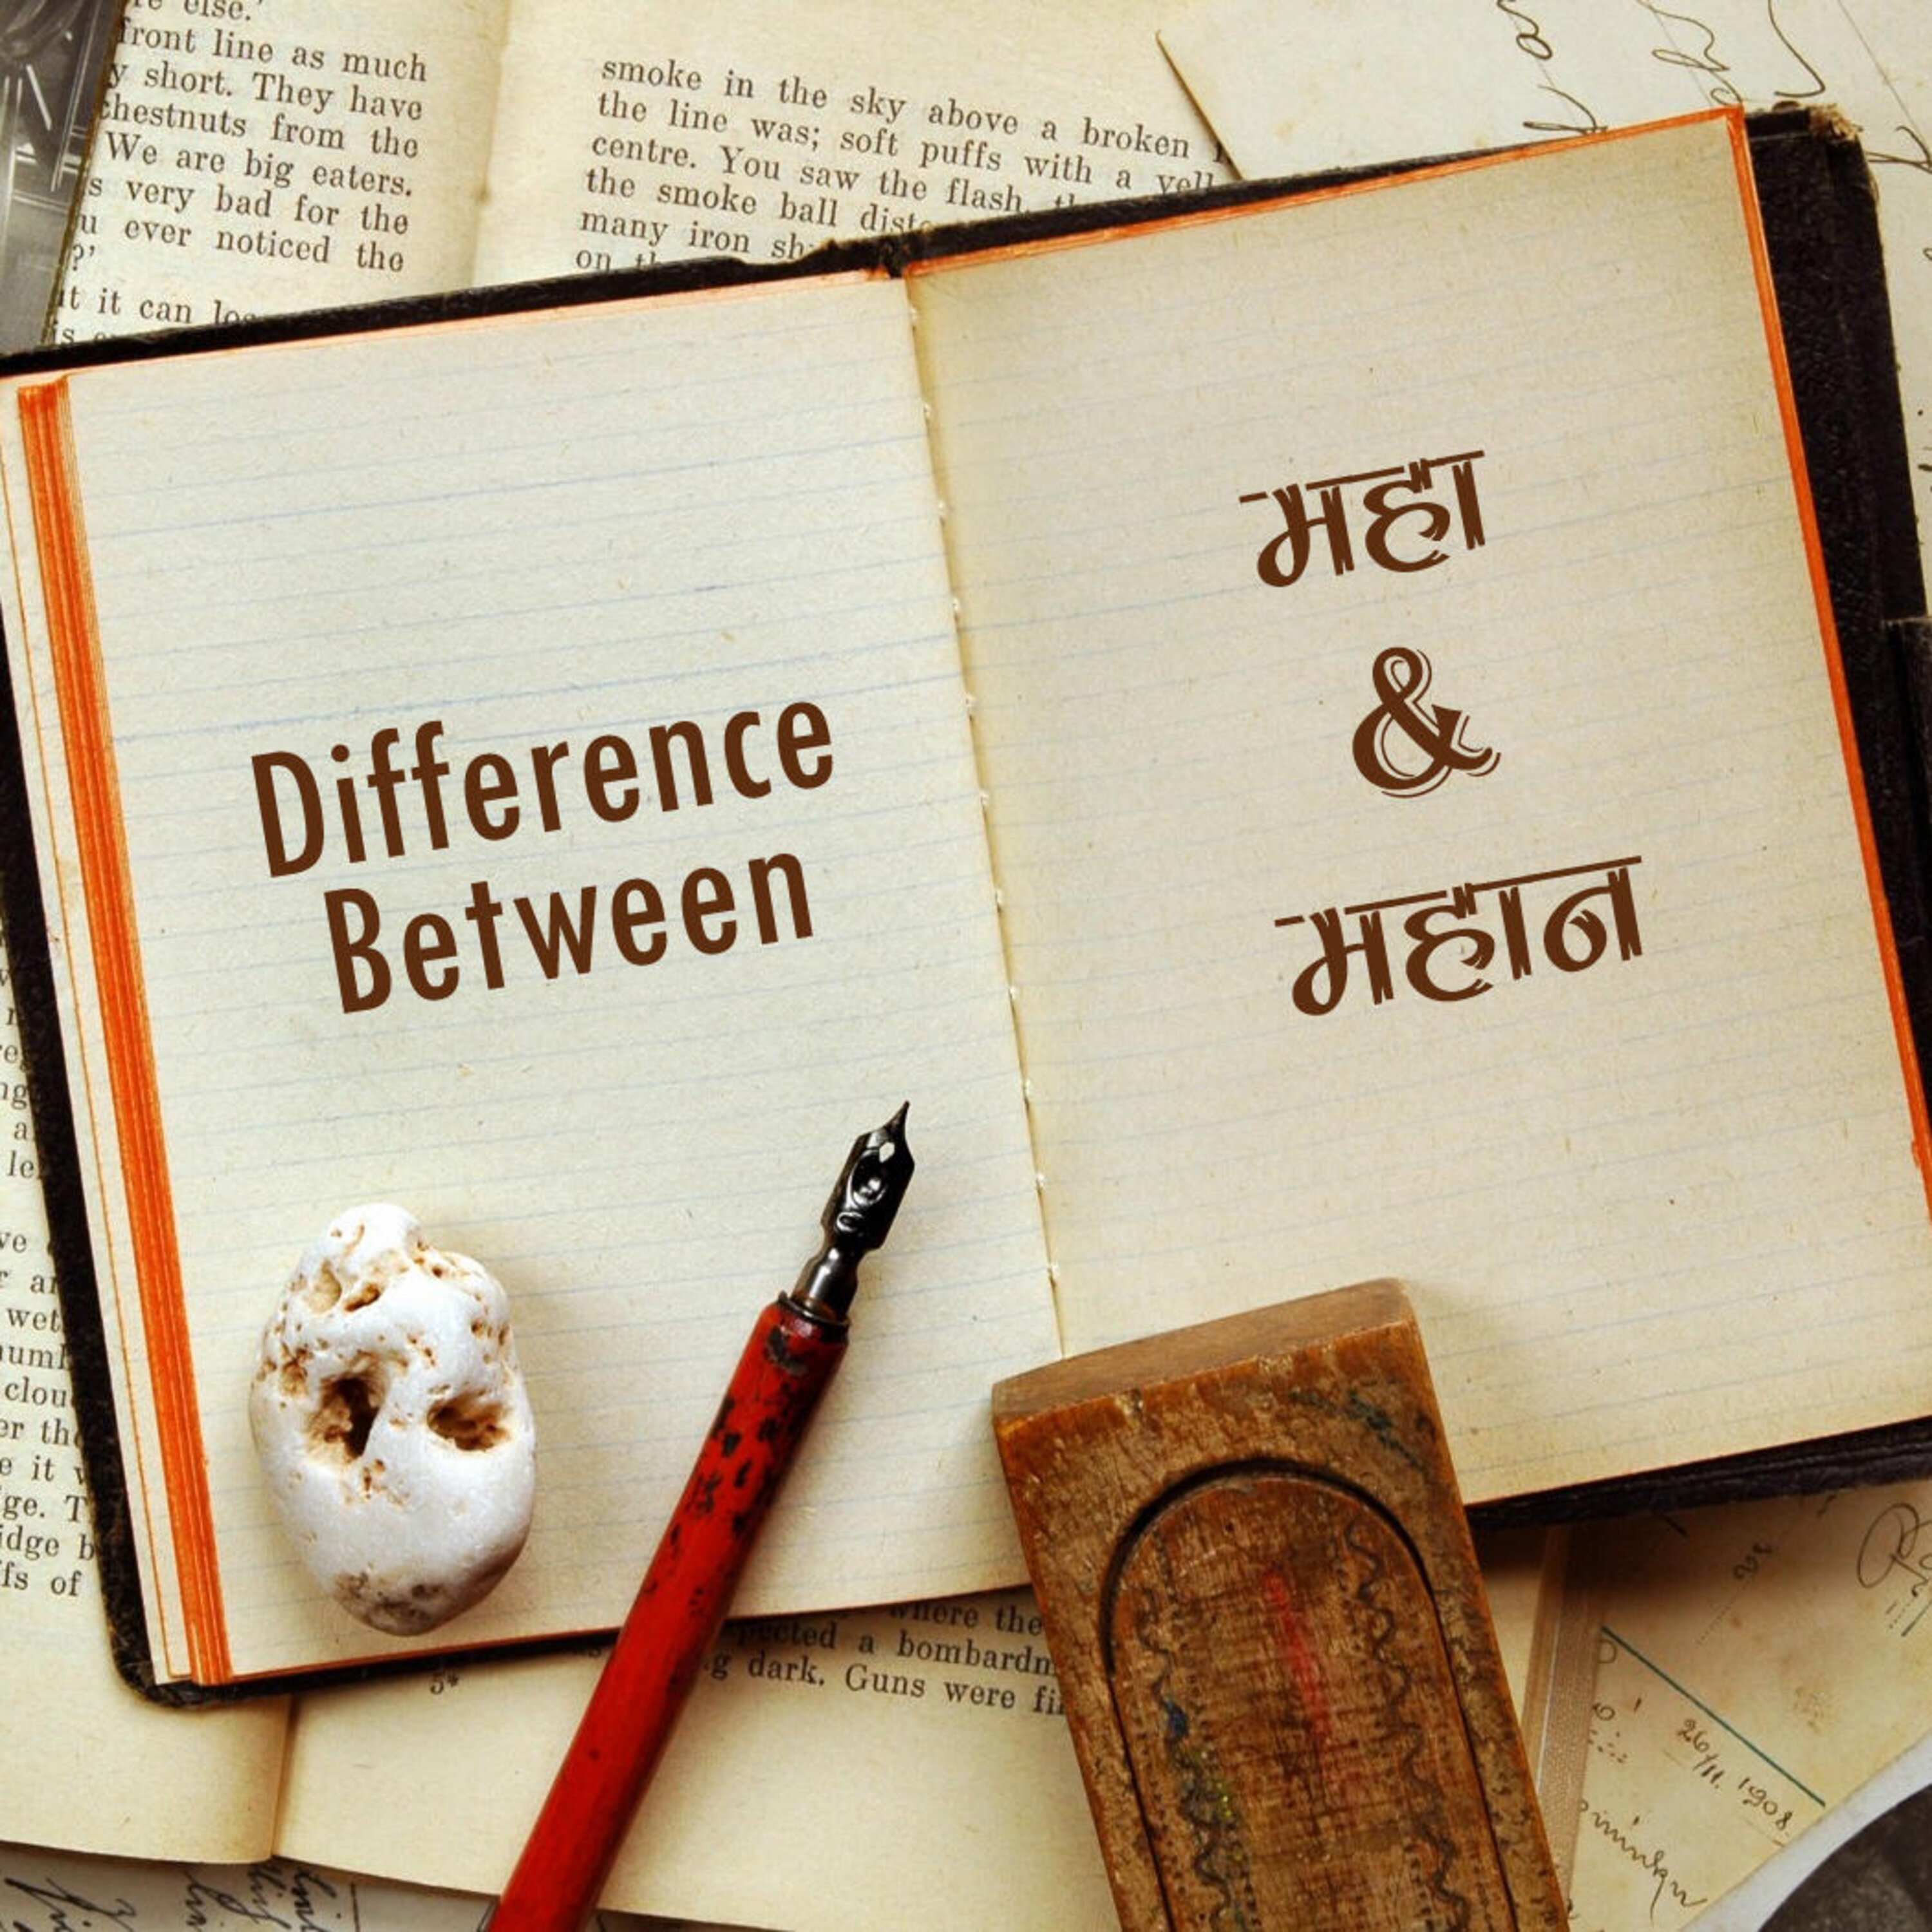 re else.'
front line as much
y short. They have
chestnuts from the
We are big eaters.
s very bad for the
u ever noticed the
?'
it it can
smoke in the sky above a broken
the line was; soft puffs with a yell
centre. You saw the flash,
the smoke ball
many iron
on
Difference
Between
महा
&
महान
le
ve
wet
clou
er the
e it
ge. T
idge b
fs of
where the
a bombardm
g dark. Guns were fi
5*
26/11. 1908.